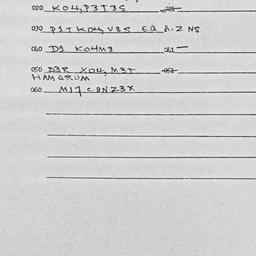 020 KO4, P3T3S
030 P1TKO4, V3S EQ A.Z NS
040 D1 KO4M3 041 —
050 D3R XO4, M3T 051
HAMQRUM
060 M17C9NZ3X